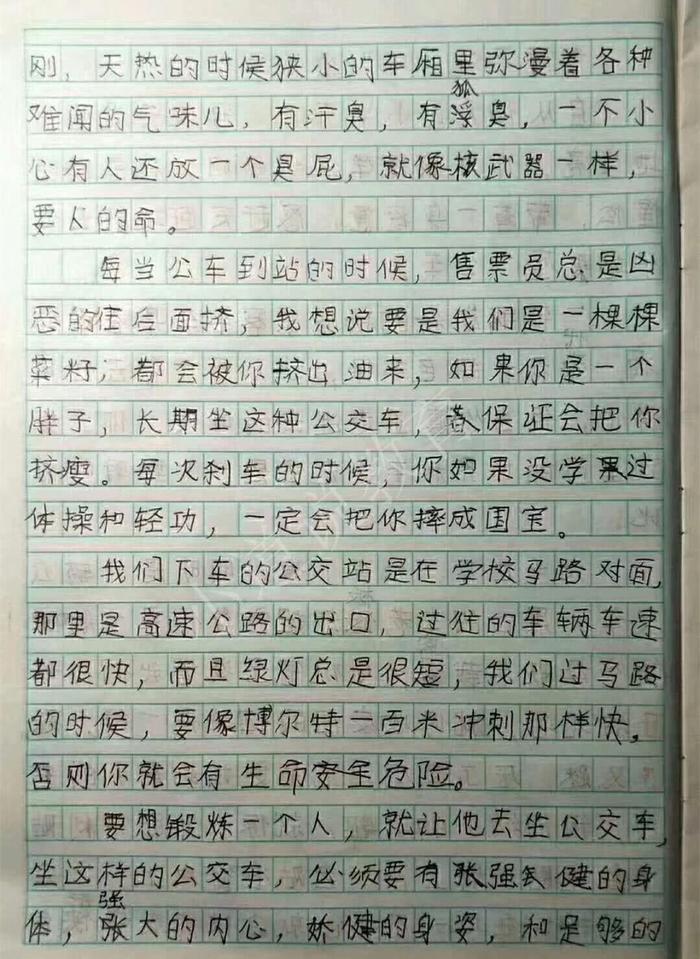 刚，天热的时候狭小的车厢里弥漫着各种
狐
难闻的气味儿，有汗臭，有浮臭，一不小
心有人还放一个臭屁，就像核武器一样，
要人的命。
每当公车到站的时候，售票员总是凶
恶的往后面挤，我想说要是我们是一棵棵
菜籽，都会被你挤出油来，如果你是一个
胖子，长期坐这种公交车，保证会把你
挤瘦。每次刹车的时候，你如果没学过
体操和轻功，一定会把你摔成国宝。
我们下车的公交站是在学校马路对面，
那里是高速公路的出口，过往的车辆车速
都很快，而且绿灯总是很短，我们过马路
的时候，要像博尔特一百米冲刺那样快，
否则你就会有生命安全危险。
要想锻炼一个人，就让他去坐公交车，
坐这样的公交车，必须要有强健的身
强
体，张大的内心，娇健的身姿，和足够的